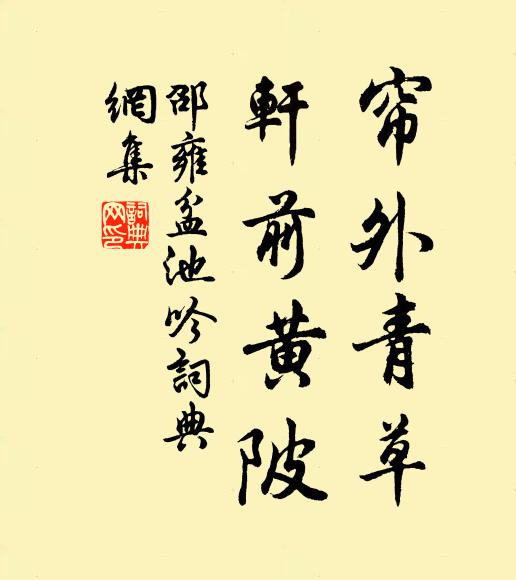 帘外青草
軒前黃陂
邵雍盆池吟詞典
網集
詞典
网印